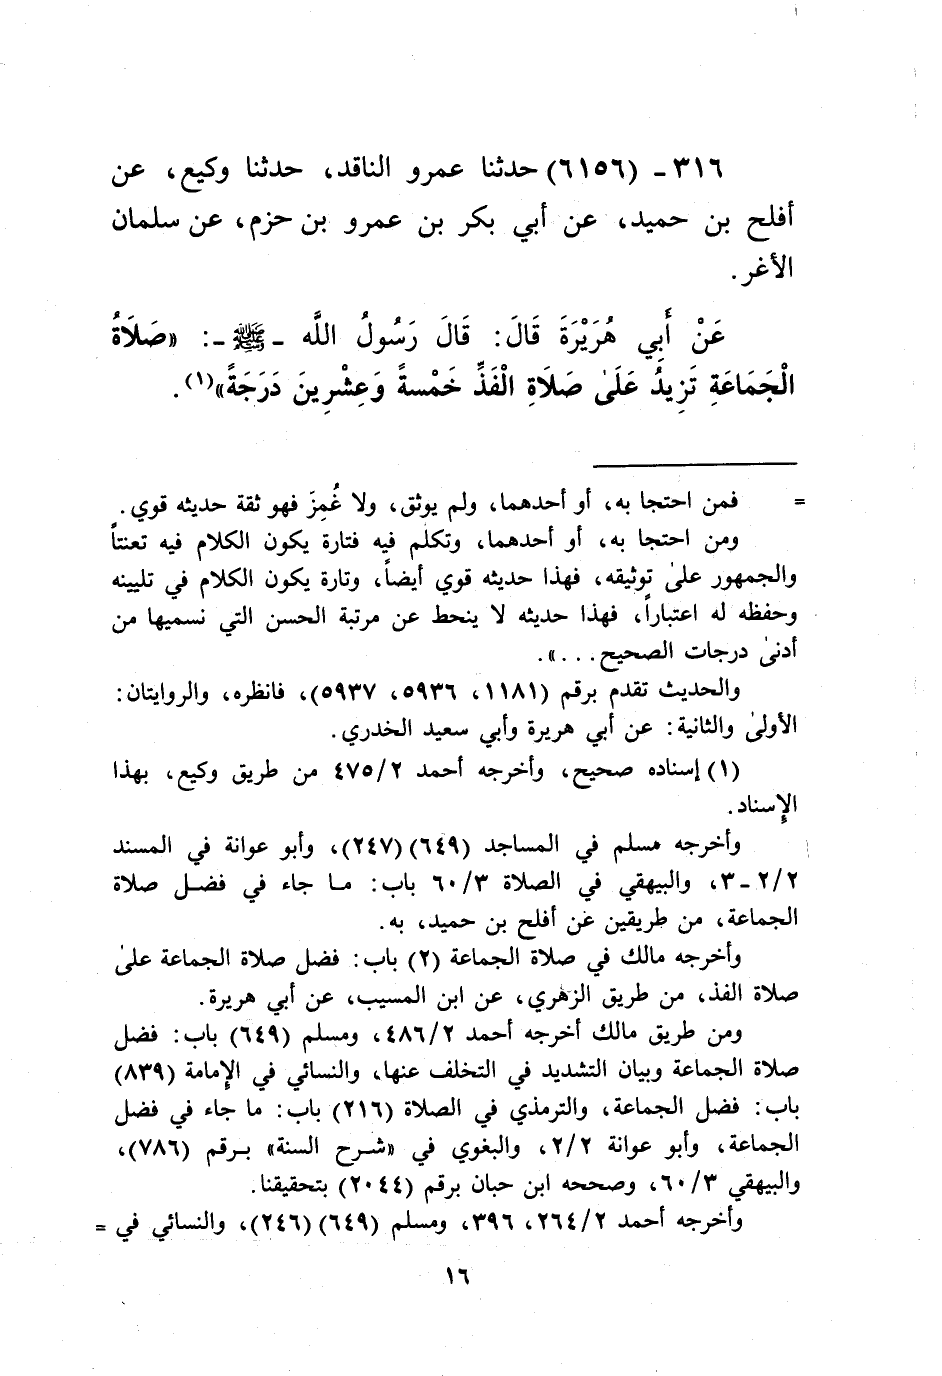 ٣١٦ - (٦١٥٦) حدثنا عمرو الناقد، حدثنا وكيع، عن
أفلح بن حميد، عن أبي بكر بن عمرو بن حزم، عن سلمان
الأغر.
عَنْ أَبِي هُرَيْرَةَ قَالَ: قَالَ رَسُولُ اللَّه - ﷺ -: «صَلَاةُ
الْجَمَاعَةِ تَزِيدُ عَلَىٰ صَلَاةِ الْفَذِّ خَمْسةً وَعِشْرِينَ دَرَجَةً»(١).
= فمن احتجا به، أو أحدهما، ولم يوثق، ولا غُمِزَ فهو ثقة حديثه قوي.
ومن احتجا به، أو أحدهما، وتكلم فيه فتارة يكون الكلام فيه تعنتاً
والجمهور علىٰ توثيقه، فهذا حديثه قوي أيضاً، وتارة يكون الكلام في تليينه
وحفظه له اعتباراً، فهذا حديثه لا ينحط عن مرتبة الحسن التي نسميها من
أدنىٰ درجات الصحيح...».
والحديث تقدم برقم (١١٨١، ٥٩٣٦، ٥٩٣٧)، فانظره، والروايتان:
الأولىٰ والثانية: عن أبي هريرة وأبي سعيد الخدري.
(١) إسناده صحيح، وأخرجه أحمد ٤٧٥/٢ من طريق وكيع، بهذا
الإسناد.
وأخرجه مسلم في المساجد (٦٤٩) (٢٤٧)، وأبو عوانة في المسند
٢/٢ - ٣، والبيهقي في الصلاة ٦٠/٣ باب: ما جاء في فضل صلاة
الجماعة، من طريقين عن أفلح بن حميد، به.
وأخرجه مالك في صلاة الجماعة (٢) باب: فضل صلاة الجماعة علىٰ
صلاة الفذ، من طريق الزهري، عن ابن المسيب، عن أبي هريرة.
ومن طريق مالك أخرجه أحمد ٤٨٦/٢، ومسلم (٦٤٩) باب: فضل
صلاة الجماعة وبيان التشديد في التخلف عنها، والنسائي في الإمامة (٨٣٩)
باب: فضل الجماعة، والترمذي في الصلاة (٢١٦) باب: ما جاء في فضل
الجماعة، وأبو عوانة ٢/٢، والبغوي في «شرح السنة» برقم (٧٨٦)،
والبيهقي ٦٠/٣، وصححه ابن حبان برقم (٢٠٤٤) بتحقيقنا.
وأخرجه أحمد ٢٦٤/٢، ٣٩٦، ومسلم (٦٤٩) (٢٤٦)، والنسائي في =
١٦